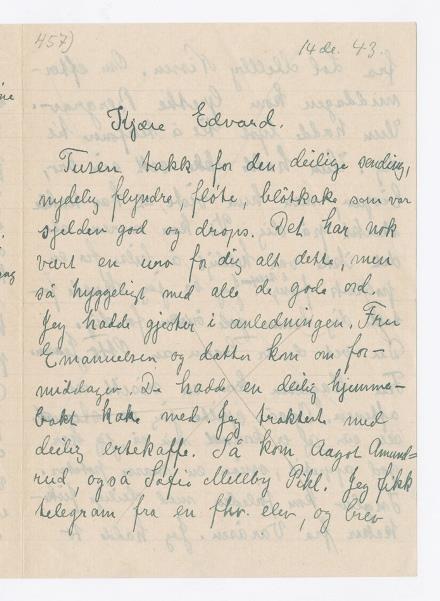 457)
14 de. 43.
Kjære Edvard.
Tusen takk for den deilige sending,
nydelig flyndre, fløte, bløtkake som var
sjelden god og drops. Det har nok
vært en uro for dig alt dette, men
så hyggeligt med alle de gode ord.
Jeg hadde gjester i anledningen. Fru
Emanuelsen og datter kom om for-
middagen. De hadde en deilig hjemme-
bakt kake med. Jeg trakterte med
deilig ertekaffe. Så kom Aagot Amund-
rud, også Sofie Mellby Pihl. Jeg fikk
telegram fra en fhv. elev, og brev